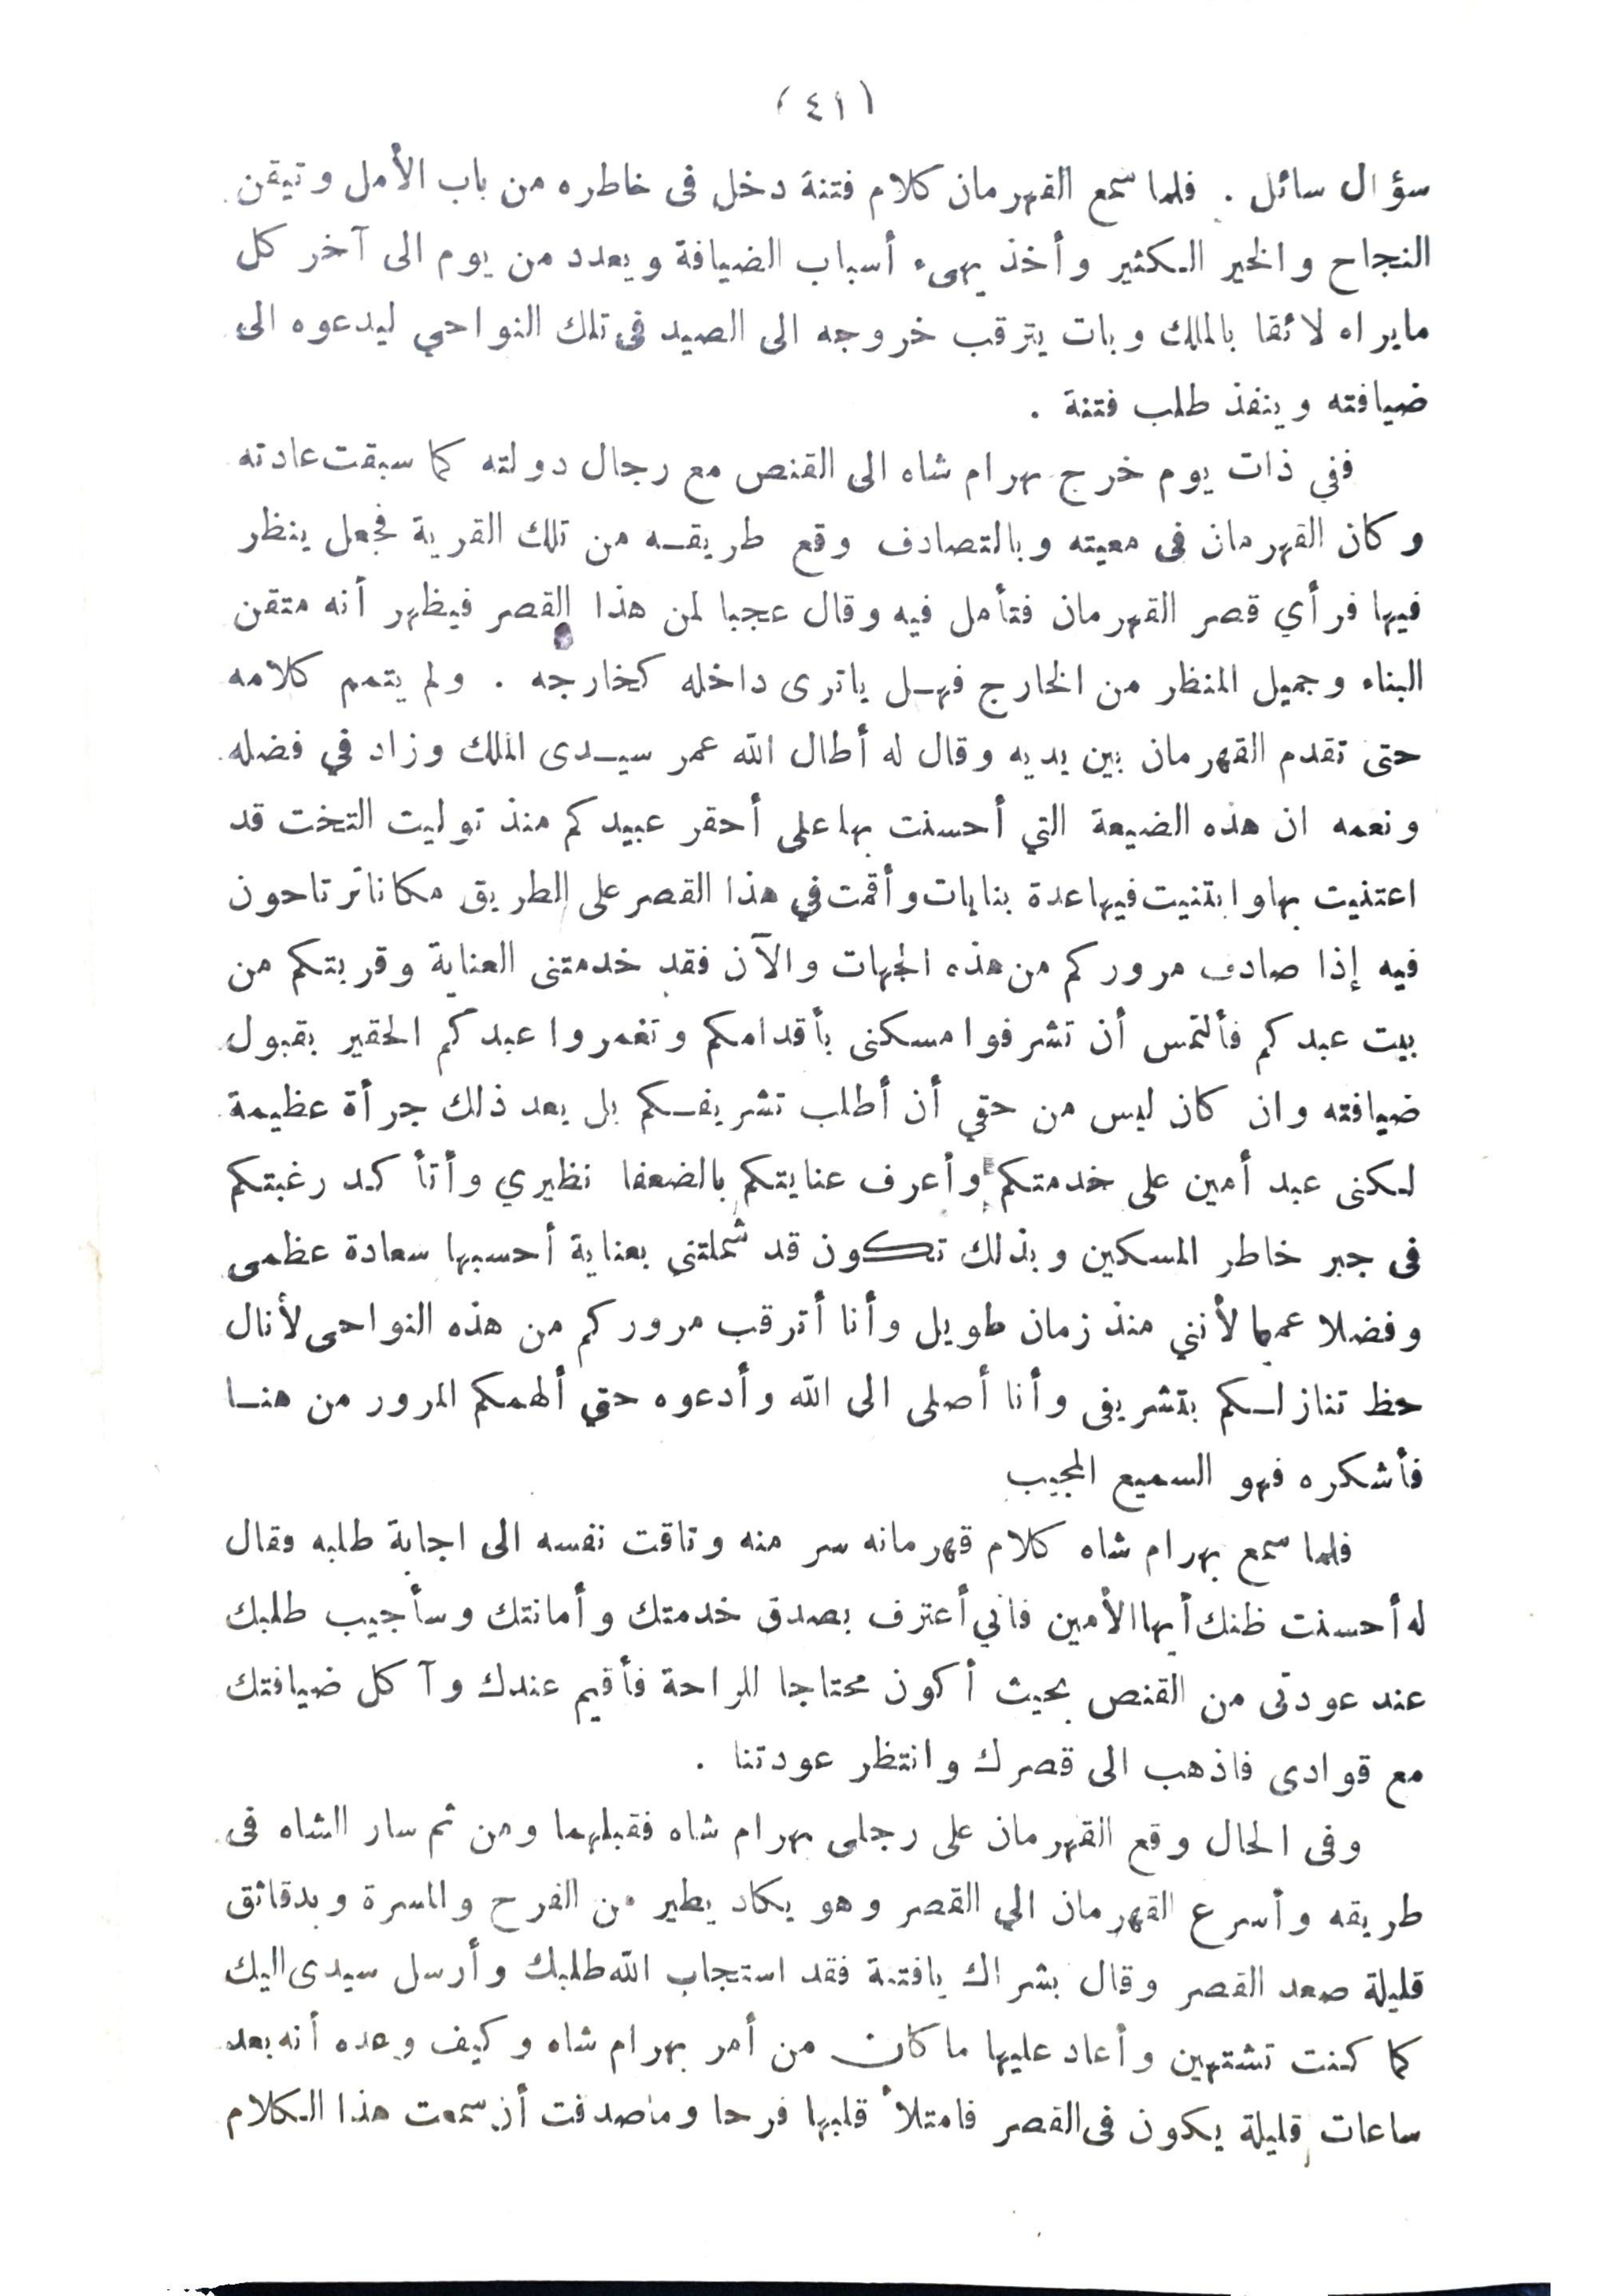 (٤١)
سؤال سائل . فلما سمع القهرمان كلام فتنة دخل فى خاطره من باب الأمل وتيقن
النجاح والخير الكثير وأخذ يهىء أسباب الضيافة ويعدد من يوم الى آخر كل
مايراه لائقا بالملك وبات يترقب خروجه الى الصيد فى تلك النواحي ليدعوه الى
ضيافته وينفذ طلب فتنة .
ففي ذات يوم خرج بهرام شاه الى القنص مع رجال دولته كما سبقت عادته
وكان القهرمان فى معيته وبالتصادف وقع طريقه من تلك القرية فجعل ينظر
فيها فرأي قصر القهرمان فتأمل فيه وقال عجبا لمن هذا القصر فيظهر أنه متقن
البناء وجميل المنظر من الخارج فهل ياترى داخله كخارجه . ولم يتمم كلامه
حتى تقدم القهرمان بين يديه وقال له أطال الله عمر سيدى الملك وزاد في فضله
ونعمه ان هذه الضيعة التي أحسنت بها على أحقر عبيدكم منذ توليت التخت قد
اعتنيت بها وابتنيت فيها عدة بنايات وأقمت في هذا القصر على الطريق مكانا ترتاحون
فيه إذا صادف مروركم من هذه الجهات والآن فقد خدمتنى العناية وقربتكم من
بيت عبدكم فألتمس أن تشرفوا مسكنى بأقدامكم وتغمروا عبدكم الحقير بقبول
ضيافته وان كان ليس من حقي أن أطلب تشريفكم بل يعد ذلك جرأة عظيمة
لكنى عبد أمين على خدمتكم وأعرف عنايتكم بالضعفا نظيري وأتأكد رغبتكم
فى جبر خاطر المسكين وبذلك تكون قد شملتني بعناية أحسبها سعادة عظمى
وفضلا عميما لأنني منذ زمان طويل وأنا أترقب مروركم من هذه النواحى لأنال
حظ تنازلكم بتشريفى وأنا أصلى الى الله وأدعوه حتي ألهمكم المرور من هنا
فأشكره فهو السميع المجيب
فلما سمع بهرام شاه كلام قهرمانه سر منه وتاقت نفسه الى اجابة طلبه وقال
له أحسنت ظنك أيها الأمين فاني أعترف بصدق خدمتك وأمانتك وسأجيب طلبك
عند عودتى من القنص بحيث أكون محتاجا للراحة فأقيم عندك وآكل ضيافتك
مع قوادى فاذهب الى قصرك وانتظر عودتنا .
وفى الحال وقع القهرمان على رجلى بهرام شاه فقبلهما ومن ثم سار الشاه فى
طريقه وأسرع القهرمان الي القصر وهو يكاد يطير من الفرح والمسرة وبدقائق
قليلة صعد القصر وقال بشراك يافتنة فقد استجاب الله طلبك وأرسل سيدى اليك
كما كنت تشتهين وأعاد عليها ما كان من أمر بهرام شاه وكيف وعده أنه بعد
ساعات قليلة يكون فى القصر فامتلأ قلبها فرحا وماصدقت أن سمعت هذا الكلام